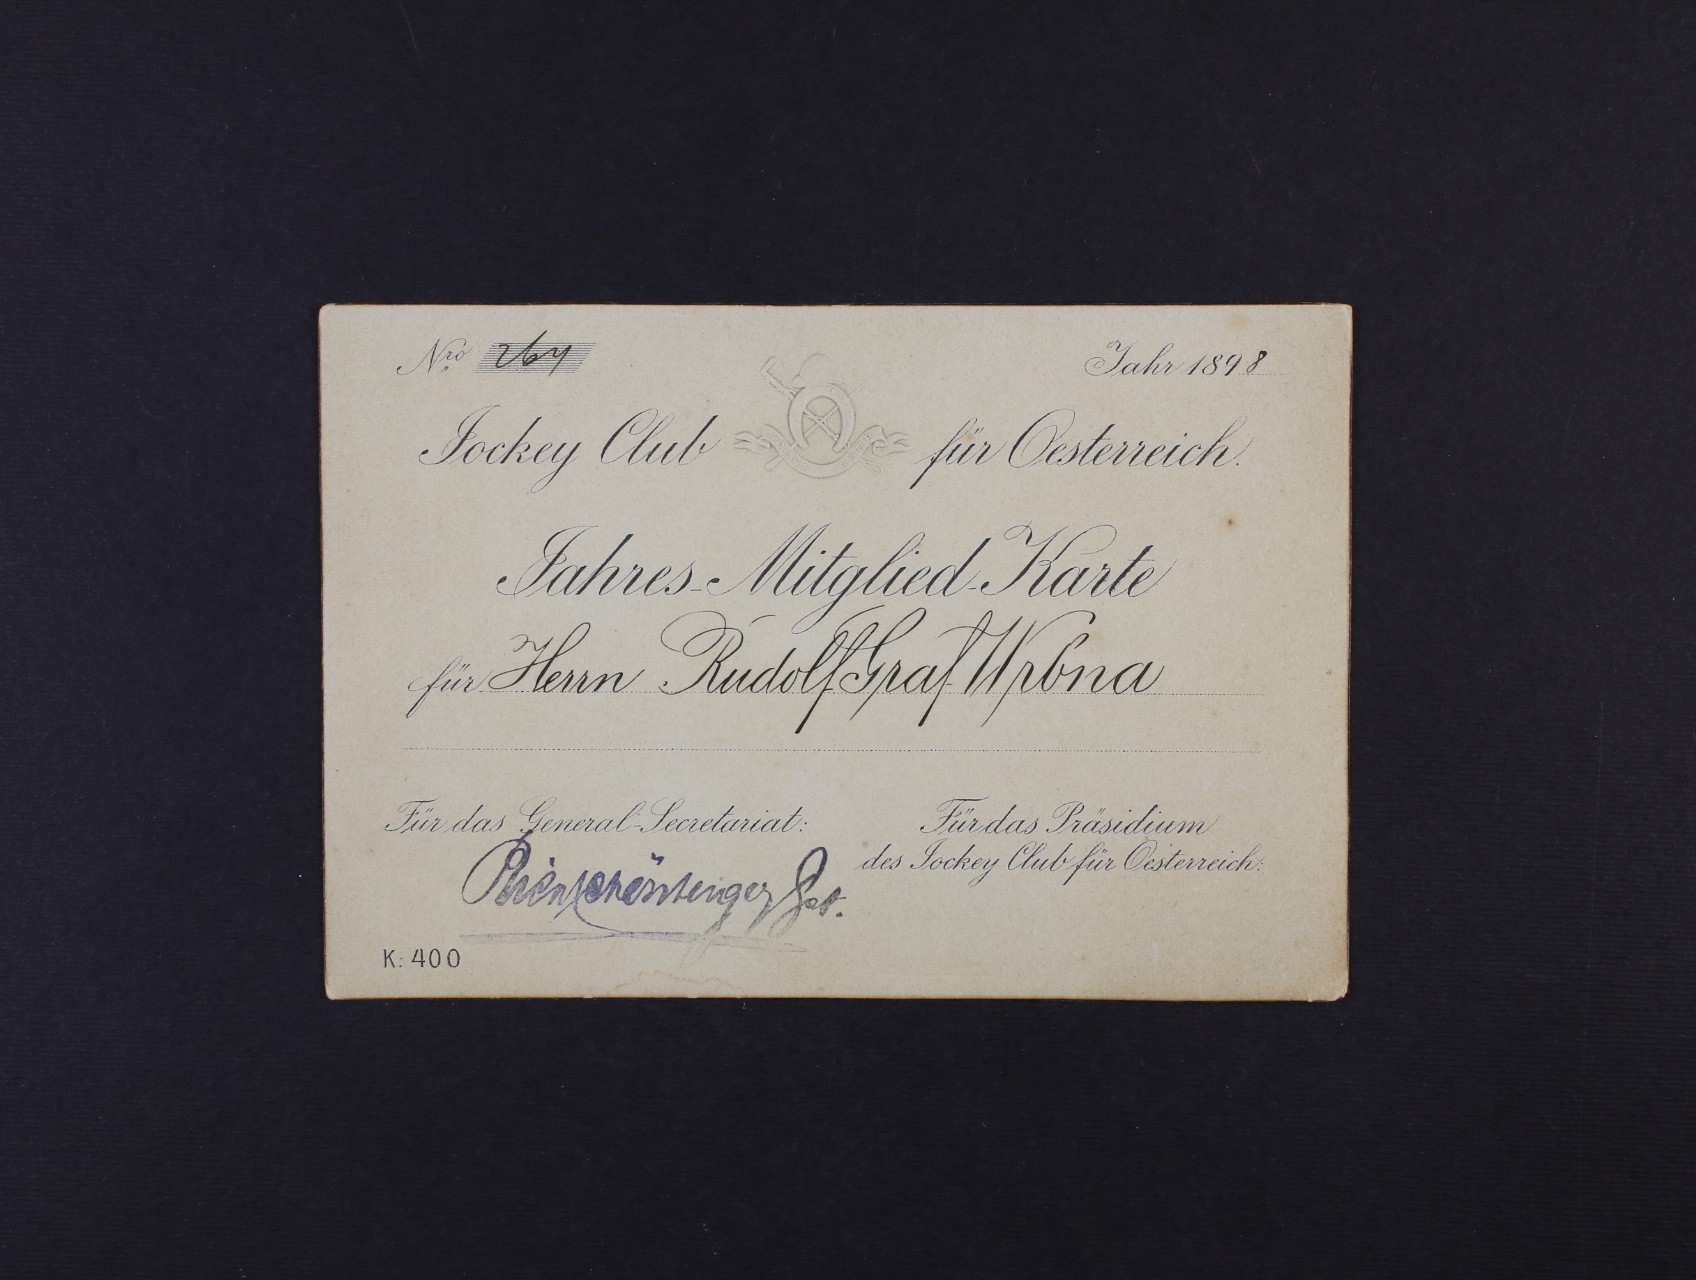 Nro 264
Jahr 1898
Jockey Club für Oesterreich.
Jahres-Mitglied-Karte
für Herrn Rudolf Graf Wrbna
Für das General-Secretariat:
Für das Präsidium
des Jockey Club für Oesterreich:
K: 400